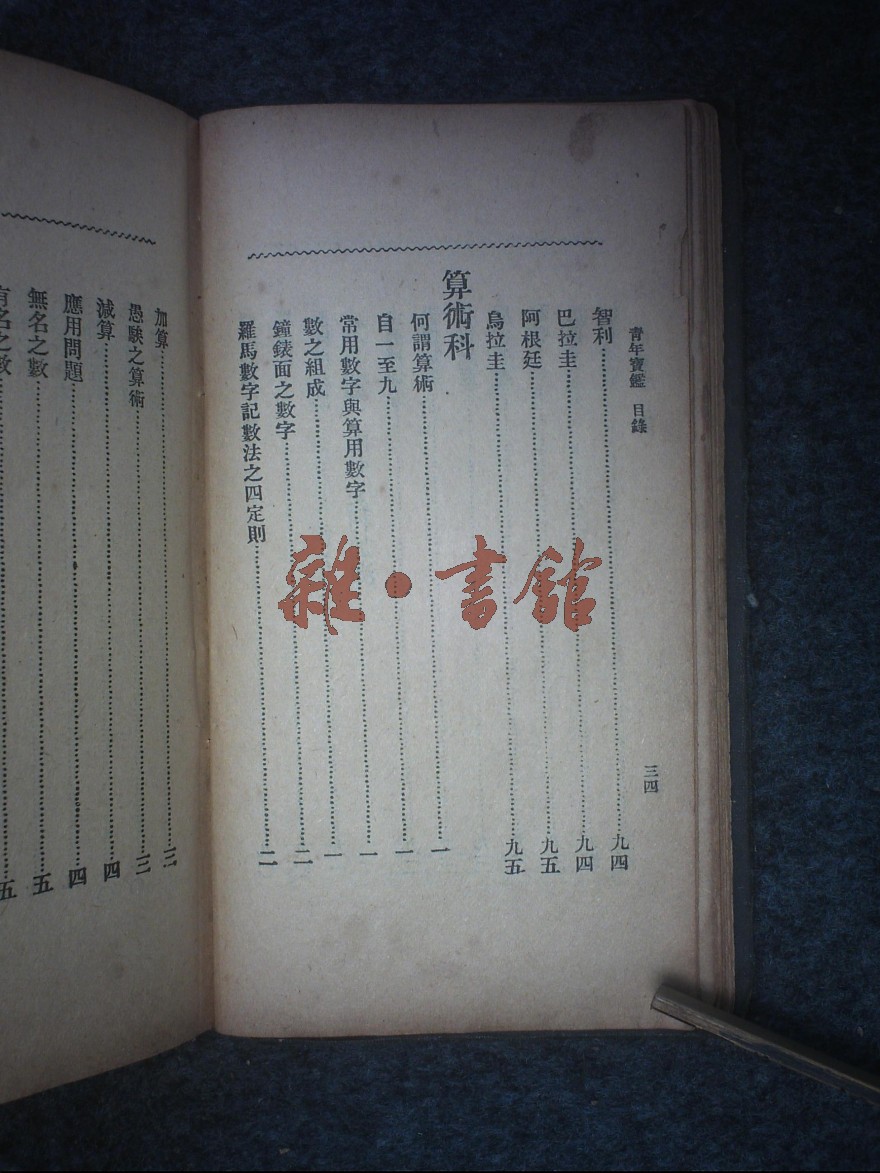 青年寶鑑 目錄
三四
智利…………九四
巴拉圭…………九四
阿根廷…………九五
烏拉圭…………九五
算術科
何謂算術…………一
自一至九…………一
常用數字與算用數字…………一
數之組成…………一
鐘錶面之數字…………二
羅馬數字記數法之四定則…………二
加算…………三
愚騃之算術…………三
減算…………四
應用問題…………四
無名之數…………五
有名之數…………五
雜·書館